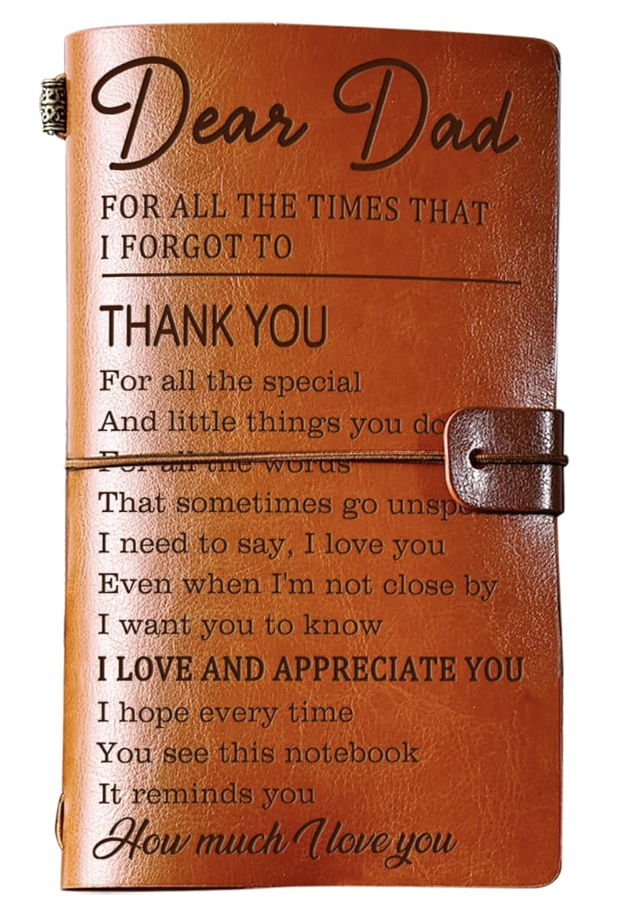 Dear Dad
FOR ALL THE TIMES THAT
I FORGOT TO
THANK YOU
For all the special
And little things you do
For all the words
That sometimes go
I need to say, I love you
Even when I'm not close by
I want you to know
I LOVE AND APPRECIATE YOU
I hope every time
You see this notebook
It reminds you
How much I love you